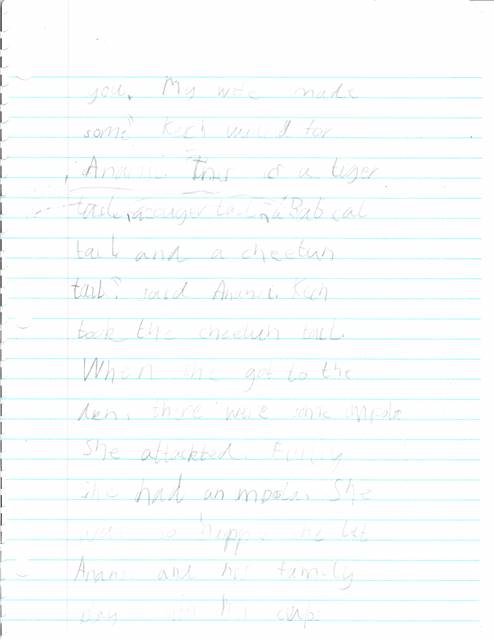 you. My wife made
some" Kech waited for
Anansi. "This is a tiger
tail, a couger tail, a Bab cat
tail and a cheetuh
tail" said Anansi. Kech
took the cheetuh tail.
When she got to the
den, there were some impala
She attackted. Finily
she had an mpala. She
was so happy she let
Anansi and his family
cup